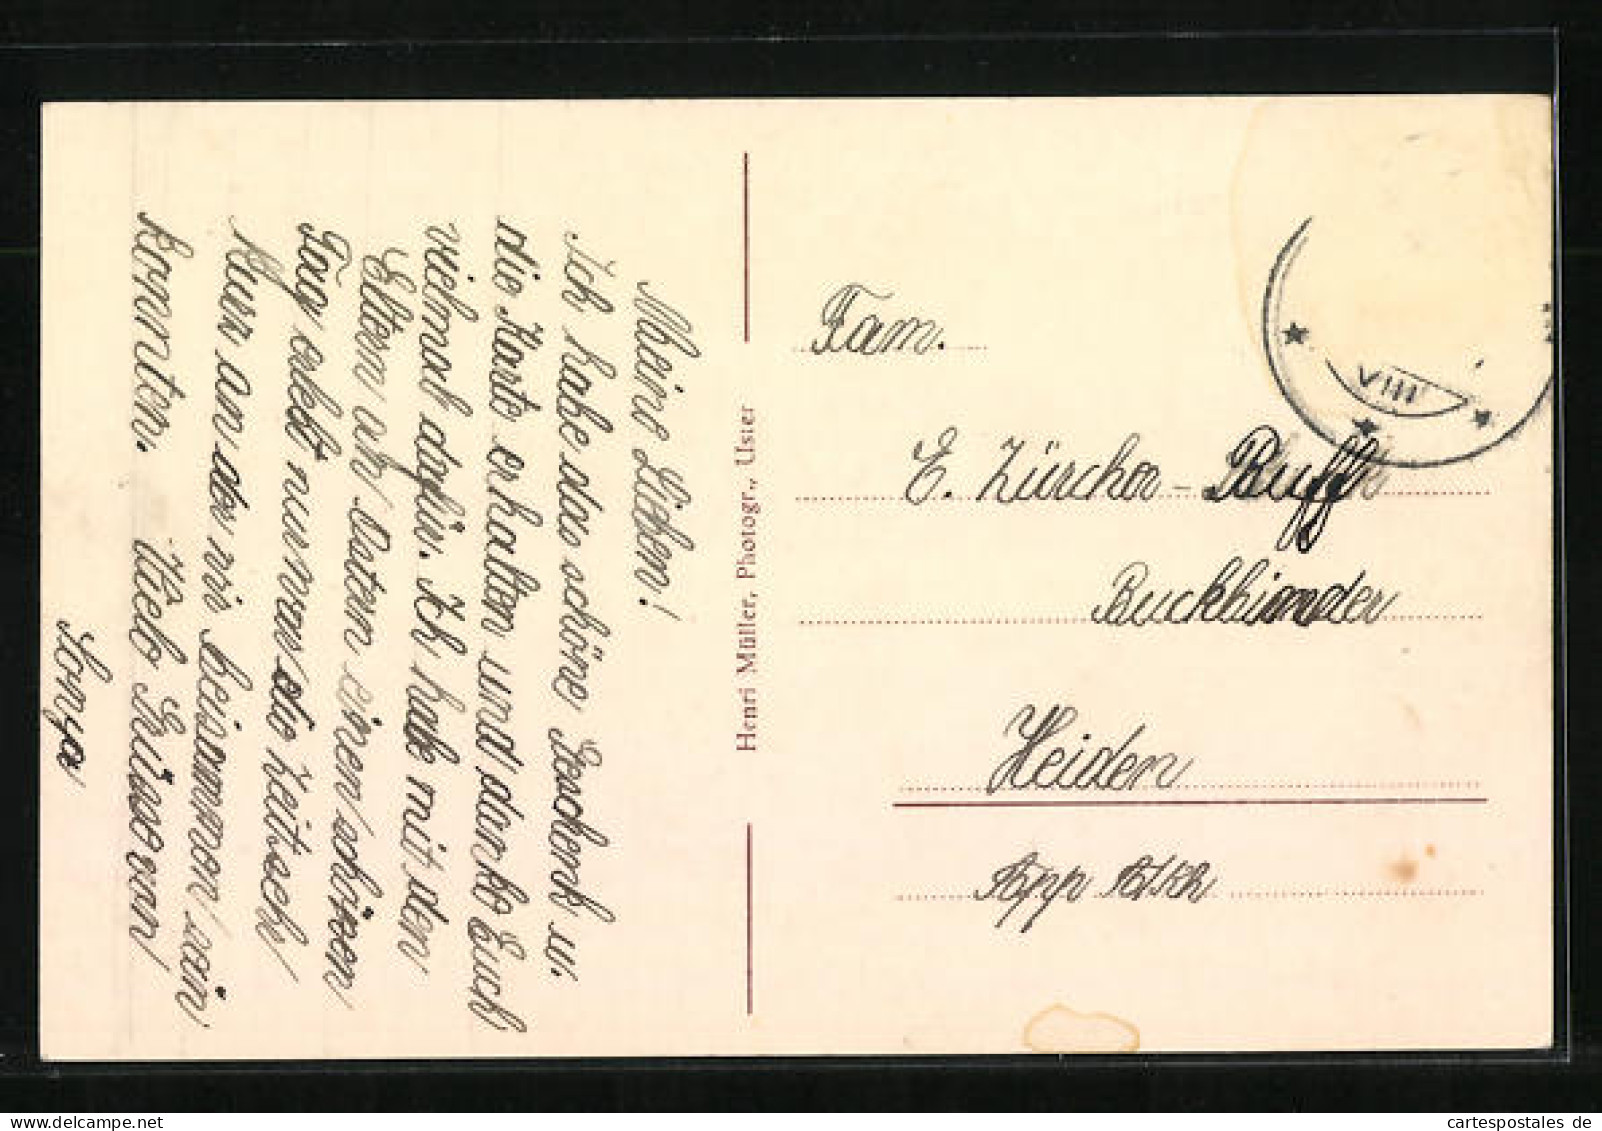 Meine Lieben!
Ich habe das schöne Geschenk u.
die Karte erhalten und danke Euch
vielmal dafür. Ich habe mit den
Eltern an Ostern einen schönen
Tag erlebt nur war die Zeit sehr
kurz an der wir beisammen sein
konnten. Viele Grüsse von
Sonya
Henri Müller, Photogr., Uster
Fam.
E. Zürcher-Ruff
Buchbinder
Heiden
App
VIII
cartespostales.de